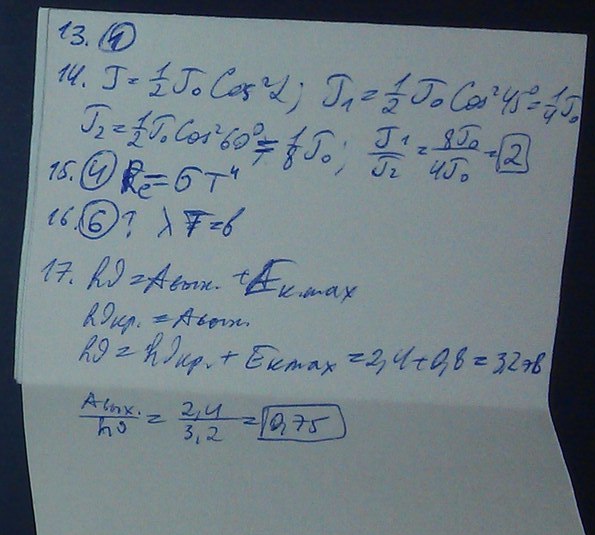 13. 4
14. J = 1/2 J₀ Cos²α; J₁ = 1/2 J₀ Cos²45° = 1/4 J₀
J₂ = 1/2 J₀ Cos²60° = 1/8 J₀; J₁/J₂ = 8J₀/4J₀ = 2
15. 4 Re = σT⁴
16. 6? λT = b
17. hν = Aвых. + Eк max
hνкр. = Aвых.
hν = hνкр. + Eк max = 2,4 + 0,8 = 3,2 эв
Aвых./hν = 2,4/3,2 = 0,75